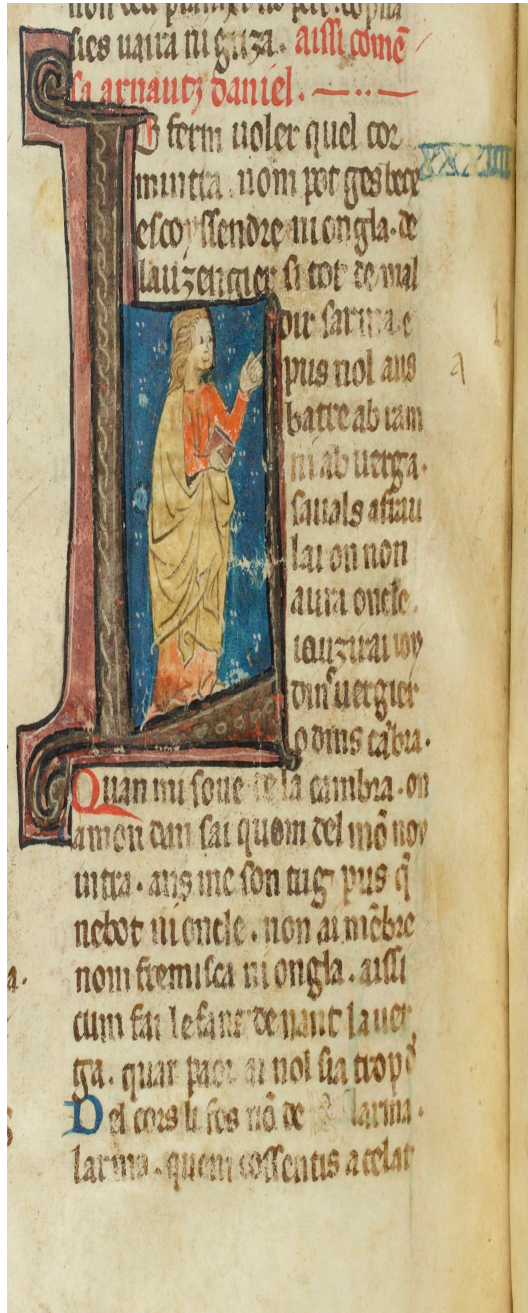 sies uaira ni guiza. aissi comē
sa arnautz daniel.
Lo ferm uoler quel cor
mintra. nom pot ges becx
escoyssendre ni ongla. de
lauzengier si tot de mal
dir sarma. e
pus nol aus
batre ab ram
ni ab uerga.
sauals a frau
lai on non
aura oncle.
iauzirai ioy
dins uergier
o dins cābra.
Quan mi soue de la cambra. on
a mon dan sai quom del mō noy
intra. ans me son tug pus q̄
nebot ni oncle. non ai mēbre
nom fremisca ni ongla. aissi
cum fai lefans denant la uer
ga. quar paor ai nol sia trop
Del cors li fos nō de larma.
larma. quem cossentis a celat